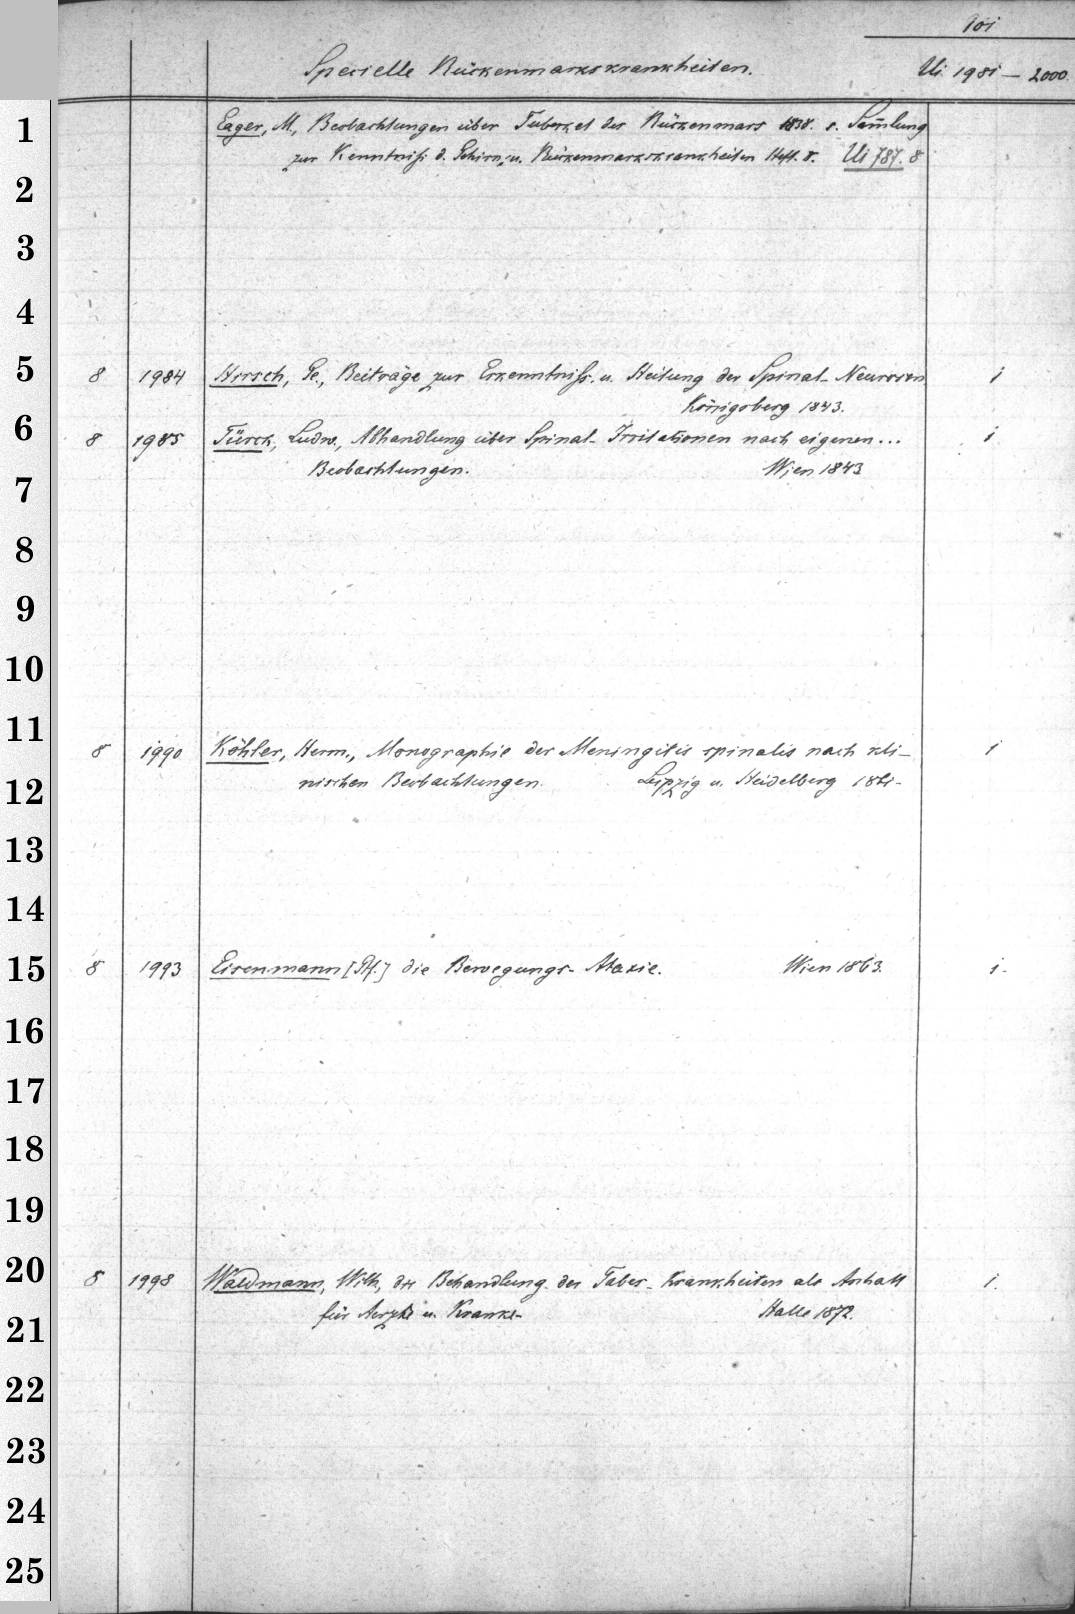 101
Specielle Rückenmarkskrankheiten. Ui 1981 — 2000.
1
Eager, M., Beobachtungen über Tuberkel des Rückenmars 1838. s. Sam̄lung
zur Kenntniß d. Gehirn, u. Rückenmarkskrankheiten Heft. 8. Ui 787. 8
2
3
4
5
8 1984 Hirsch, Ge., Beiträge zur Erkenntniß. u. Heilung der Spinal-Neurosen 1
Königsberg 1843.
6
8 1985 Türck, Ludw., Abhandlung über Spinal-Irritationen nach eigenen... 1
Beobachtungen. Wien 1843
7
8
9
10
11
8 1990 Köhler, Herm., Monographie der Meningitis spinalis nach kli- 1
nischen Beobachtungen. Leipzig u. Heidelberg 1861.
12
13
14
15
8 1993 Eisenmann [Pf.] die Bewegungs-Ataxie. Wien 1863. 1.
16
17
18
19
20
8 1998 Waldmann, Wilh, die Behandlung der Tabes-Krankheiten als Anhalt 1.
für Aerzte u. Kranke- Halle 1872.
21
22
23
24
25